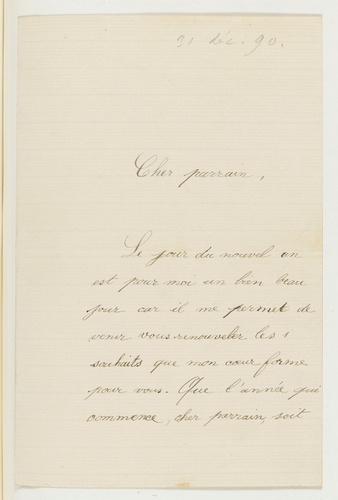 31 déc. 90.
Cher parrain,
Le jour du nouvel an
est pour moi un bien beau
jour car il me permet de
venir vous renouveler les
souhaits que mon cœur forme
pour vous. Que l'année qui
commence, cher parrain, soit